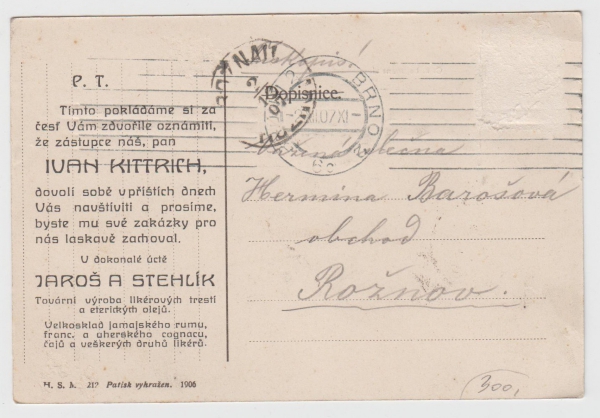 P. T.
Tímto pokládáme si za
čest Vám zdvořile oznámiti,
že zástupce náš, pan
IVAN KITTRICH,
dovolí sobě v příštích dnech
Vás navštíviti a prosíme,
byste mu své zakázky pro
nás laskavě zachoval.
V dokonalé úctě
JAROŠ A STEHLÍK
Tovární výroba likérových trestí
a eterických olejů.
Velkosklad jamajského rumu,
franc. a uherského cognacu,
čajů a veškerých druhů likérů.
H. S. b. 212 Patisk vyhražen. 1906
Dopisnice.
BRNO
slečna
Hermina Barošová
obchod
Rožnov.
300,